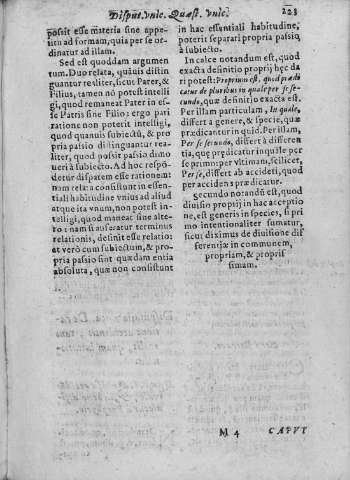 Disput. vnic. Quæst. vnic. 223
possit esse materia sine appeti
tu ad formam, quia per se or
dinatur ad illam.
Sed est quoddam argumen
tum. Duo relata, quãuis distin
guantur realiter, sicut Pater, &
Filius, tamen nõ potest intelli
gi, quod remaneat Pater in es-
se Patris sine Filio; ergo pari
ratione non poterit intelligi,
quod quanuis subiectũ, & pro
pria passio distinguantur rea-
liter, quod possit passio dimo
ueri à subiecto. Ad hoc respõ-
detur disparem esse rationem:
nam relata consistunt in essen-
tiali habitudine vnius ad aliud
atque ita vnum, non potest in-
telligi, quod maneat sine alte-
ro: nam si auferatur terminus
relationis, desinit esse relatio:
at verò cum subiectum, & pro
pria passio sint quædam entia
absoluta, quæ non consistunt
in hac essentiali habitudine,
poterit separari propria passio,
à subiecto.
In calce notandum est, quod
exacta definitio proprij hęc da
ri potest: Proprium est, quod prædi
catur de pluribus in quale per se se-
cundo, quæ definitio exacta est.
Per illam particulam, In quale,
differt à genere, & specie, quæ
prædicantur in quid. Per illam,
Per se secundo, differt à differen
tia, quę prędicatur in quale per
se primò: per vltimam, scilicet,
Per se, differt ab accidēti, quod
per accidens prædicatur.
Secundo notandũ est, quod
diuisio proprij in hac acceptio
ne, est generis in species, si pri
mo intentionaliter sumatur,
sicut diximus de diuisione dif
ferentiæ in communem,
propriam, & propris
simam.
M 4 CAPVT